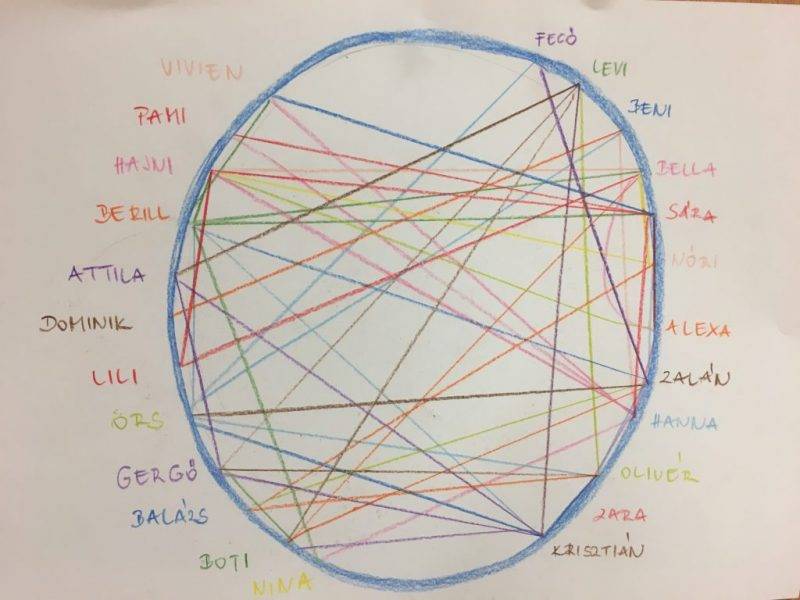 FECÓ
LEVI
BENI
BELLA
SÁRA
NÓRI
ALEXA
ZALÁN
HANNA
OLIVÉR
ZARA
KRISZTIÁN
NINA
BOTI
BALÁZS
GERGŐ
ÖRS
LILI
DOMINIK
ATTILA
BERILL
HAJNI
PAMI
VIVIEN